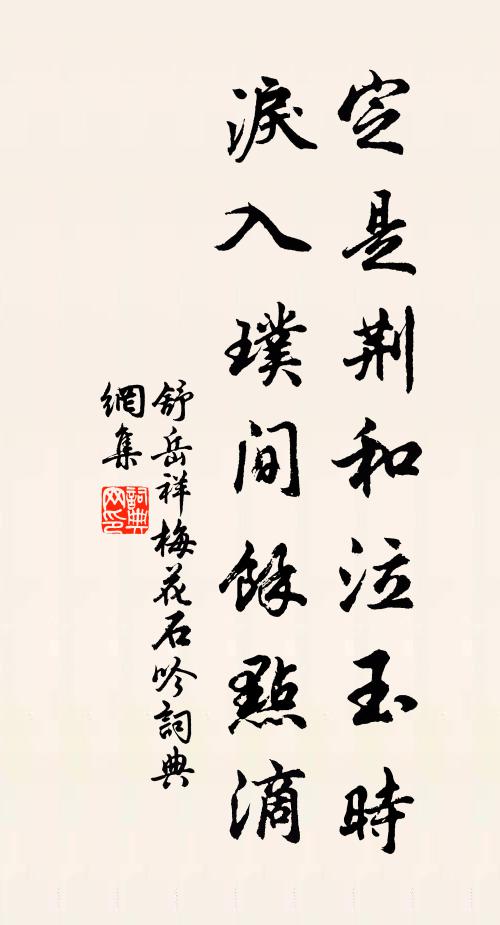 定是荆和泣玉時
淚入璞間餘點滴
舒岳祥梅花石吟詞典
網集
詞典網印